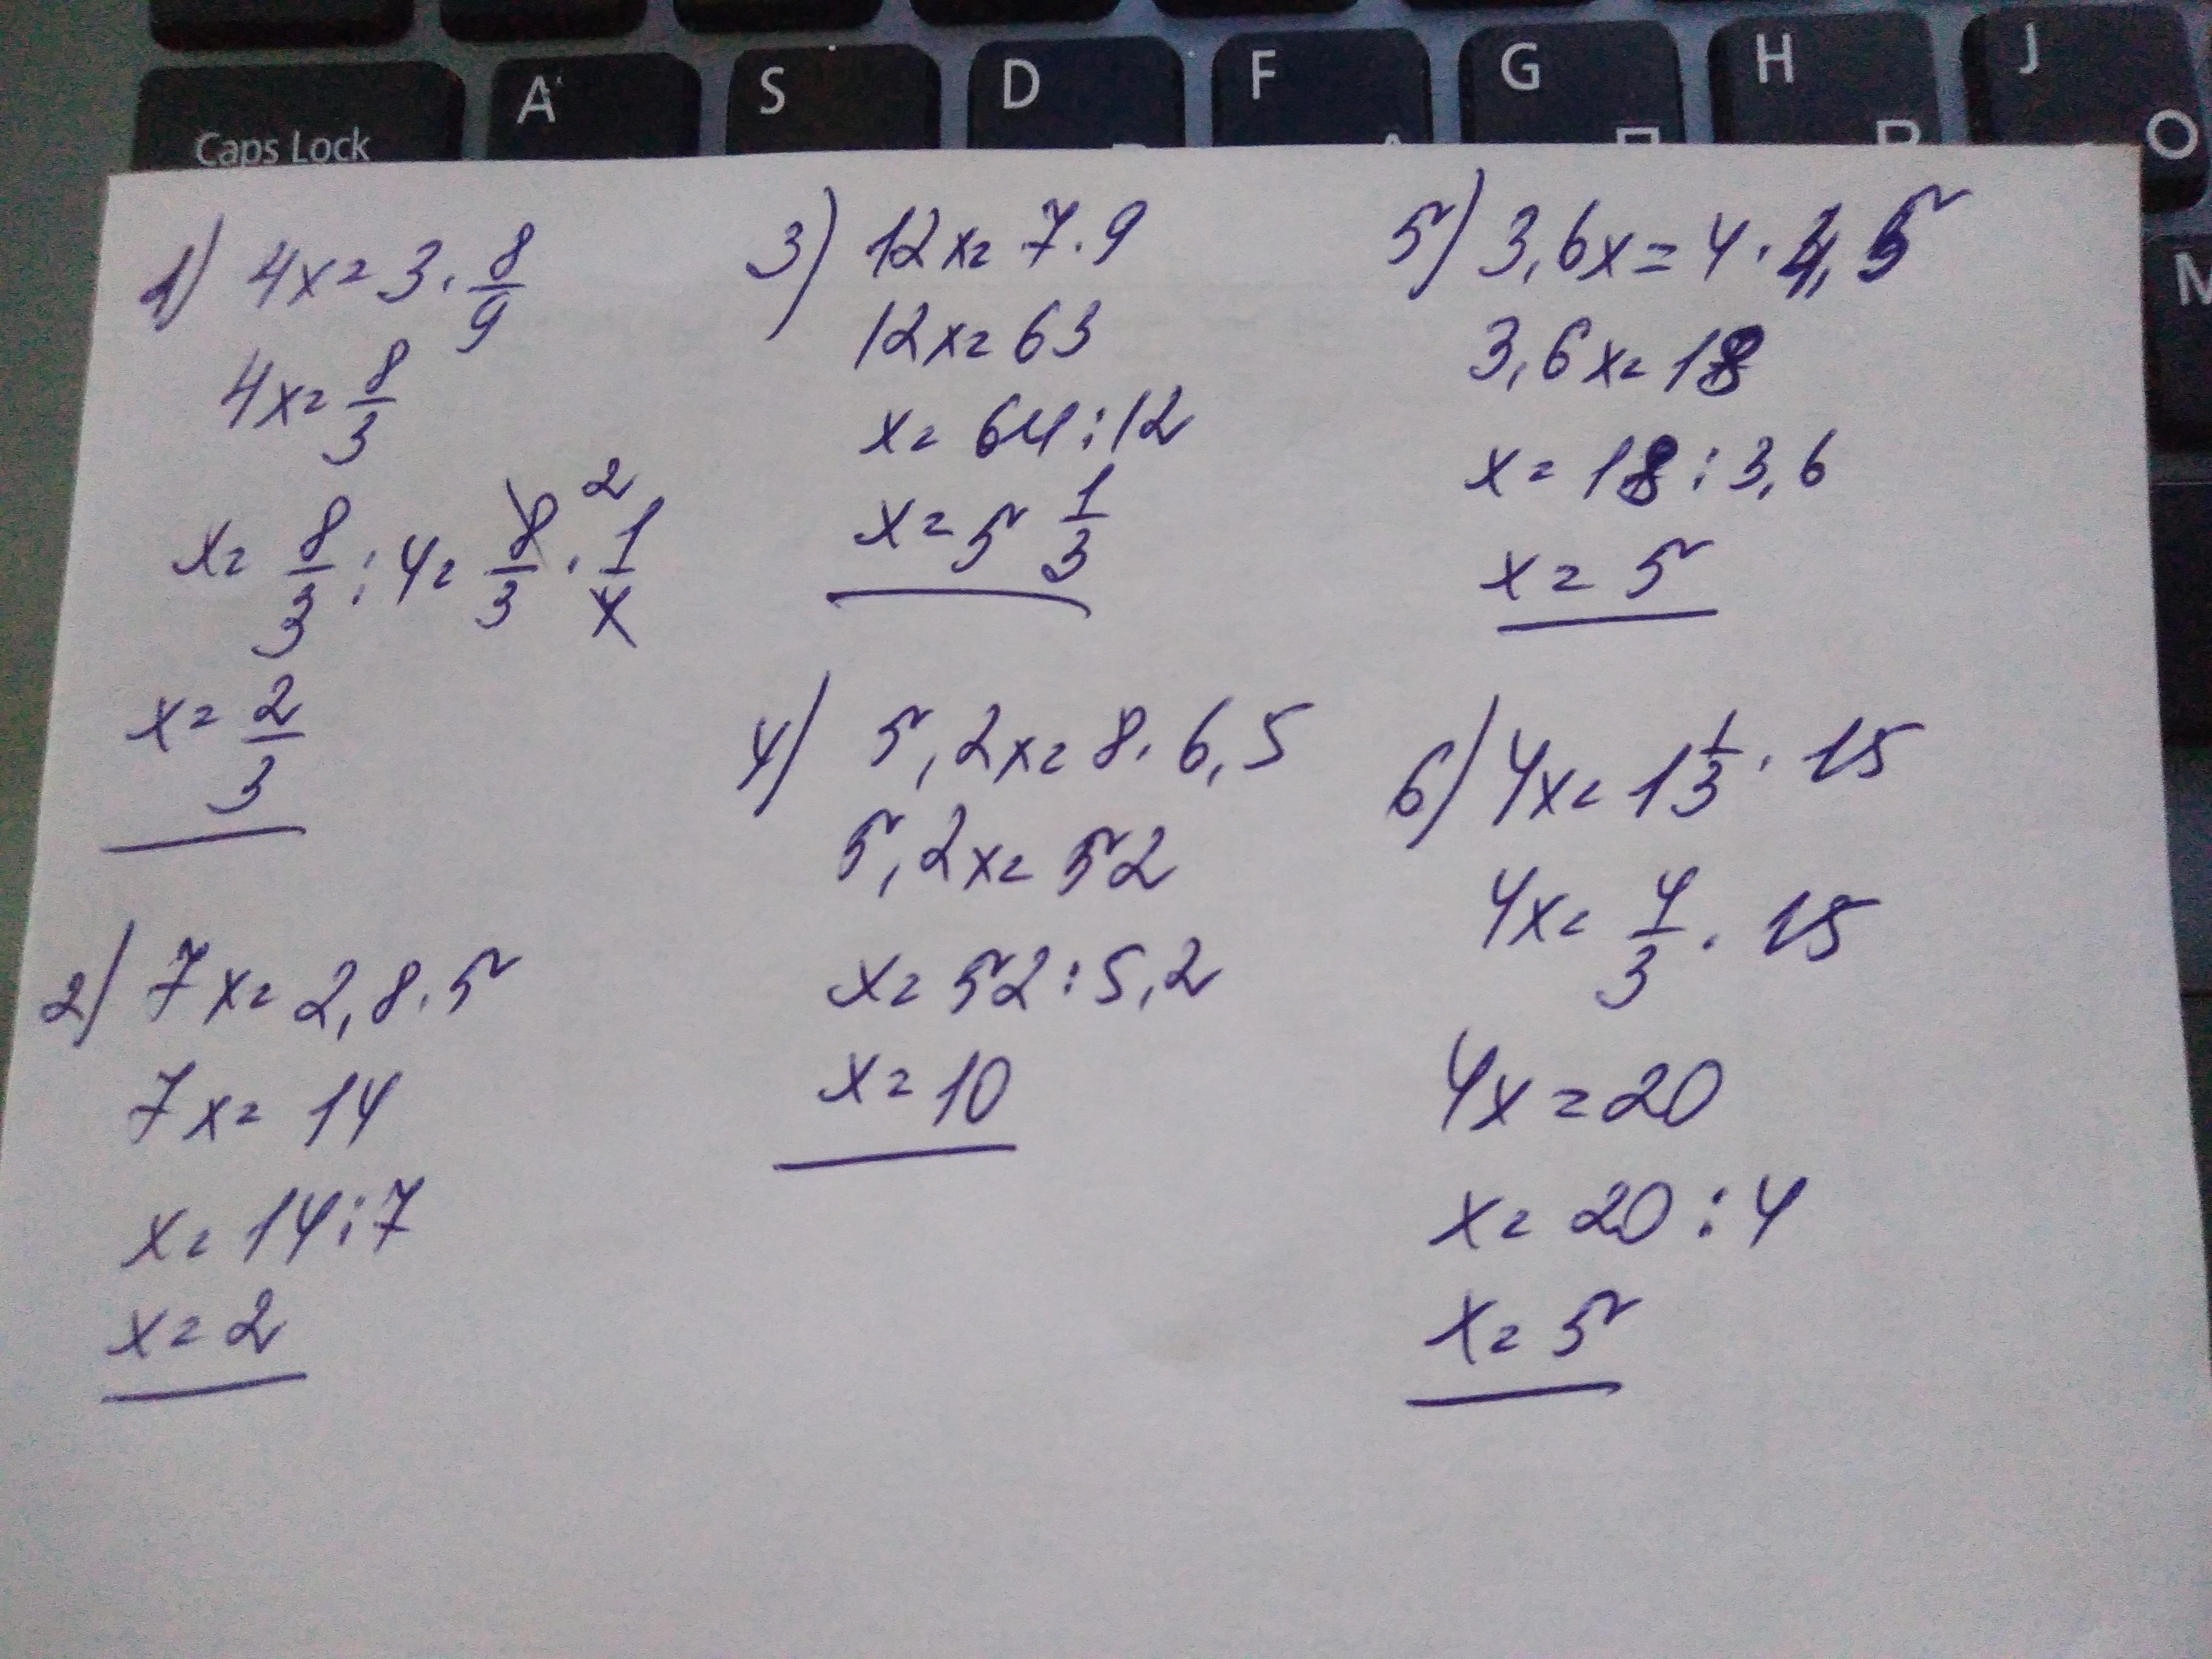 A S D F G H J
Caps Lock
П Р О
M
1) 4x = 3 · 8/9
4x = 8/3
x = 8/3 : 4 = 8/3 · 1/4 2
x = 2/3
2) 7x = 2,8 · 5
7x = 14
x = 14 : 7
x = 2
3) 12x = 7 · 9
12x = 63
x = 64 : 12
x = 5 1/3
4) 5,2x = 8 · 6,5
5,2x = 52
x = 52 : 5,2
x = 10
5) 3,6x = 4 · 4,5
3,6x = 18
x = 18 : 3,6
x = 5
6) 4x = 1 1/3 · 15
4x = 4/3 · 15
4x = 20
x = 20 : 4
x = 5